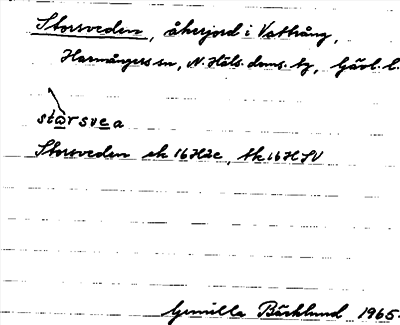 Storsveden, åkerjord i Vattrång,
Harmångers sn, N. Häls. doms. tg, Gävl. l.
stårsvea
Storsveden ek 16H2c, tk 16H SV
Gunilla Bäcklund 1965.